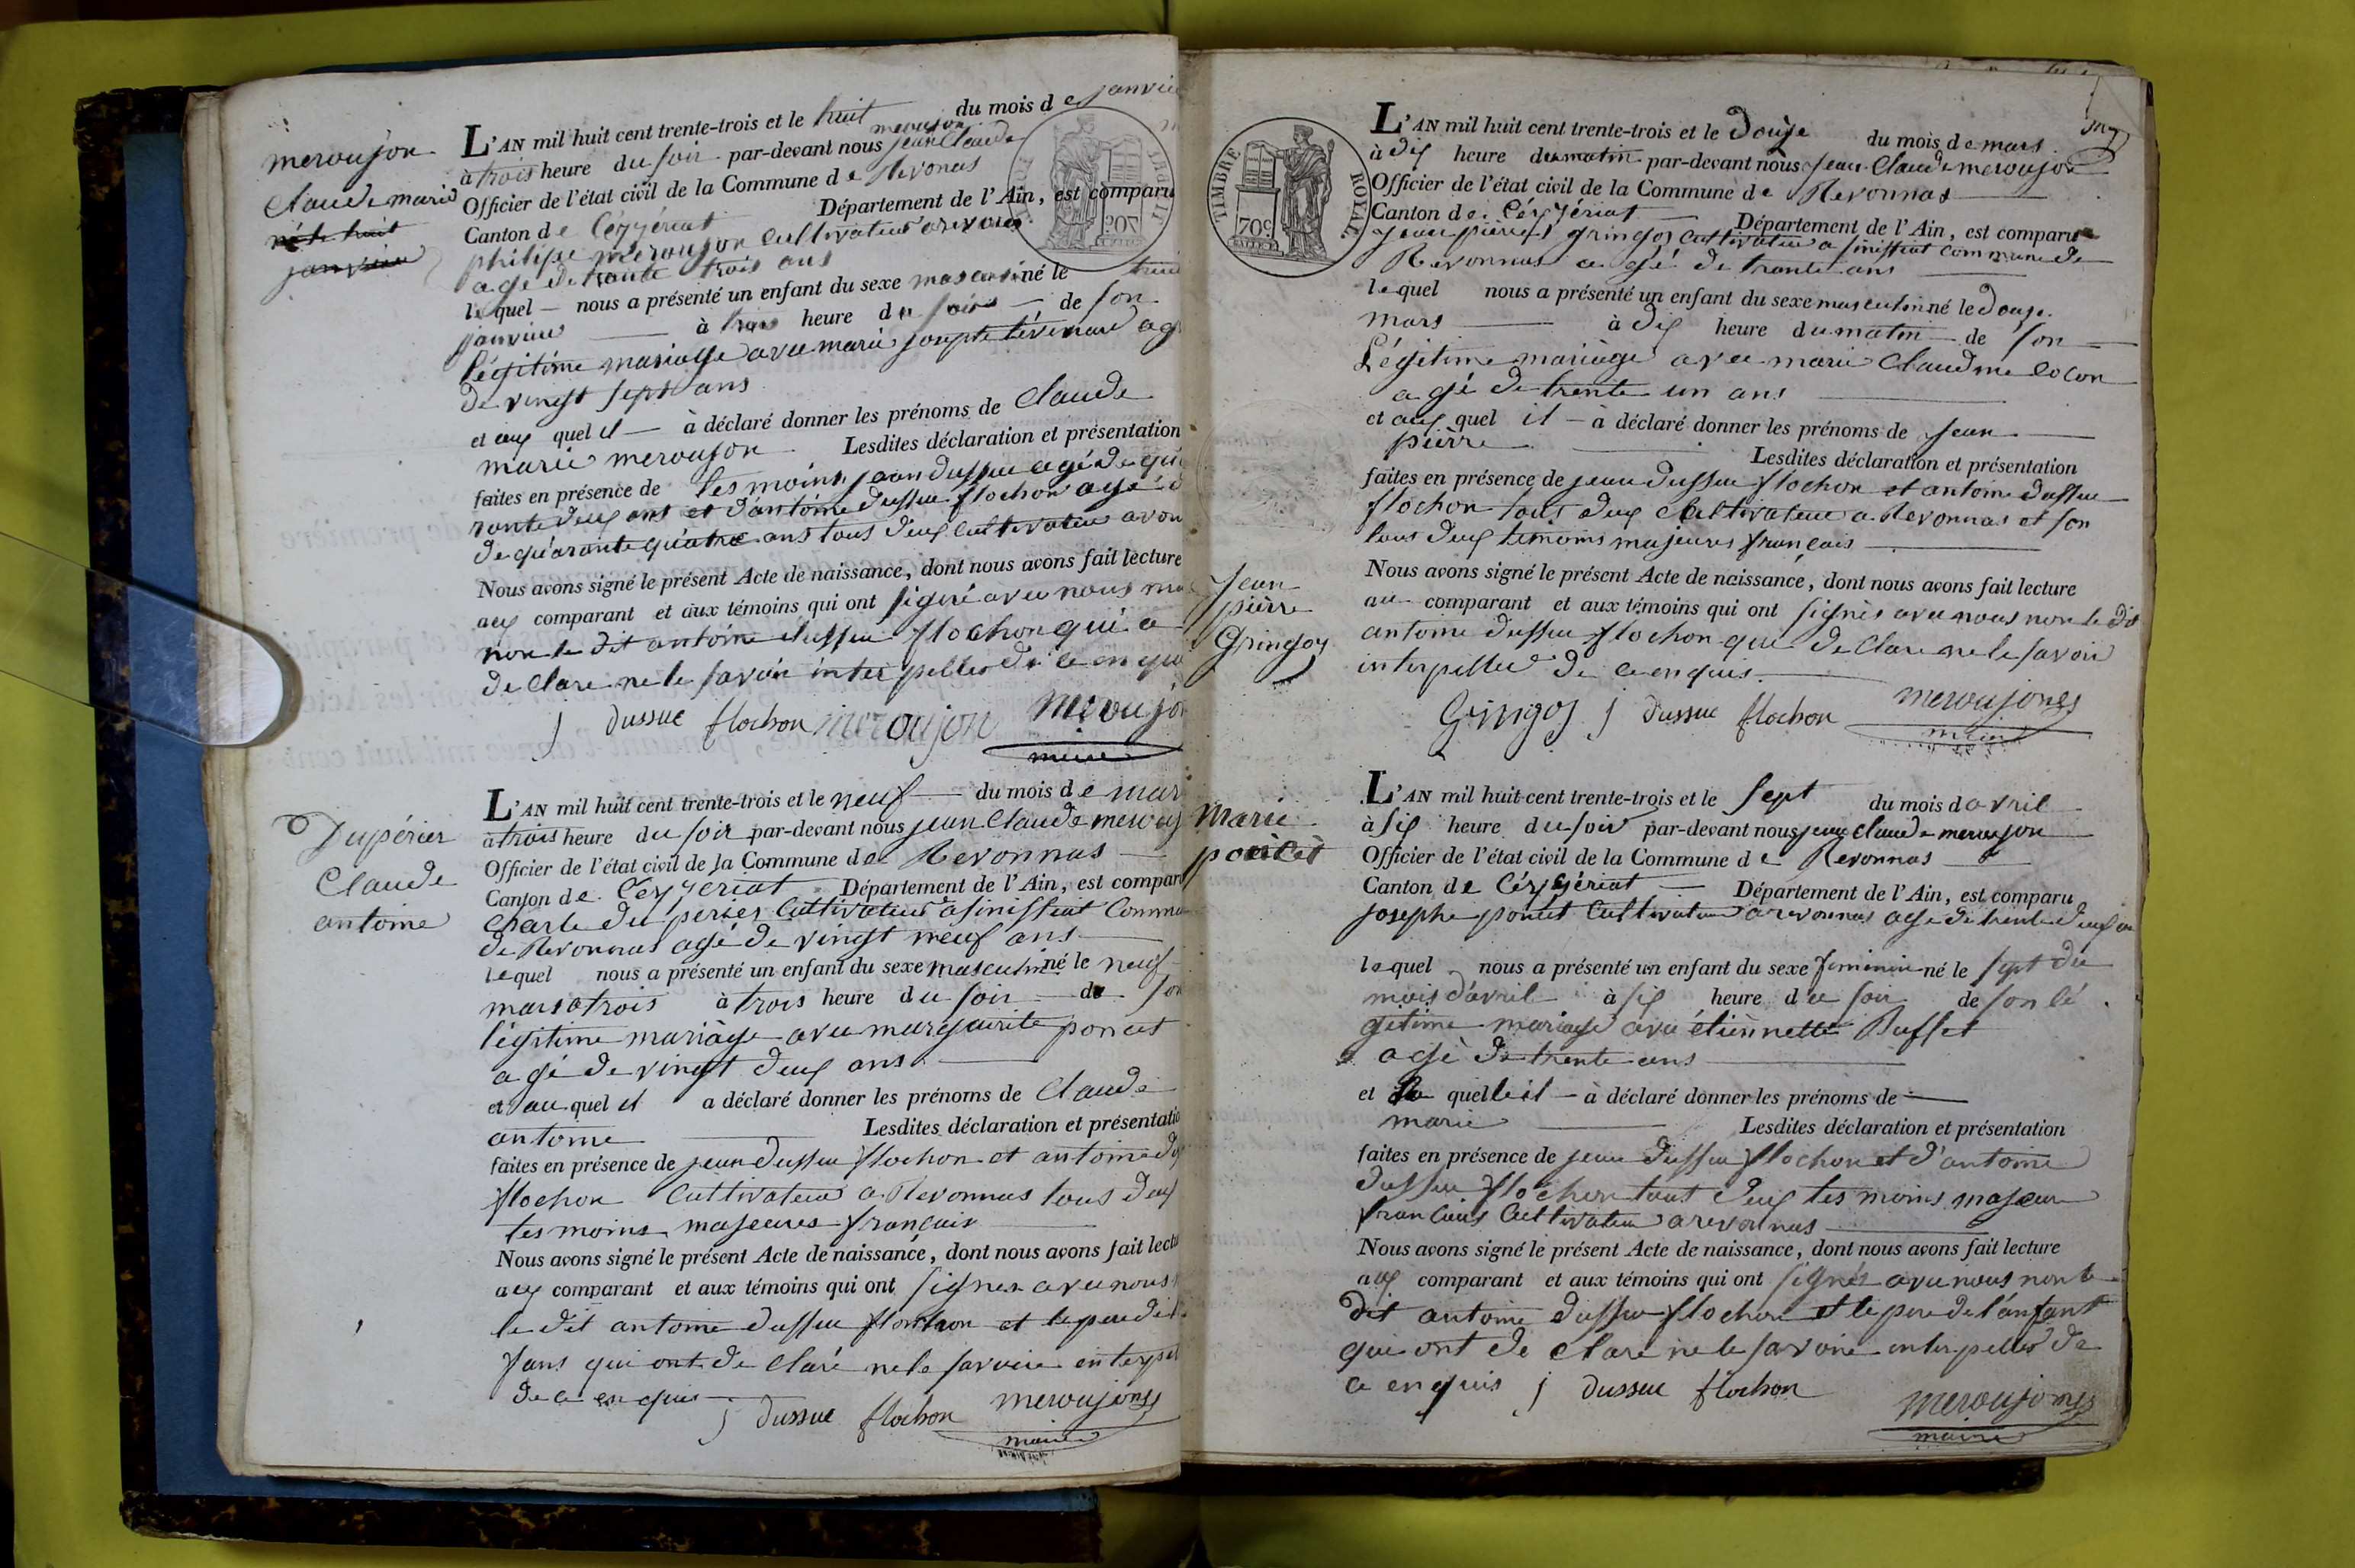 meroujon
Claude marie
né le huit
janvier
L'AN mil huit cent trente-trois et le huit du mois de janvier
à trois heure du soir par-devant nous meroujon jean Claude
Officier de l'état civil de la Commune de Revonnas
Canton de Cézzériat Département de l'Ain, est comparu
philipe meroujon Cultivateur a revonas
agé de trante trois ans
lequel nous a présenté un enfant du sexe masculin né le huit
janvier à trois heure du soir de son
légitime mariage avec marie josepte tévenard agé
de vingt sept ans
et auq quel il à déclaré donner les prénoms de Claude
marie meroujon Lesdites déclaration et présentation
faites en présence de tesmoins jean dussuc agé de qua
rante deux ans et d'antoine dussuc flochon agé
de quarante quatre ans tous deux cultivateur a
Nous avons signé le présent Acte de naissance, dont nous avons fait lecture
aux comparant et aux témoins qui ont signé avec nous
non le dit antoine dussuc flochon qui a
de Clare ne le savoir inter pellés de ce en
j dussuc flochon meroujon meroujon
maire
Dupérier
Claude
antoine
L'AN mil huit cent trente-trois et le neuf du mois de mar
à trois heure du soir par-devant nous jean Claude merouj
Officier de l'état civil de la Commune de Revonnas
Canton de Cézzeriat Département de l'Ain, est compar
Charle du perier Cultivateur a sinissiat Commu
de Revonnas agé de vingt neuf ans
lequel nous a présenté un enfant du sexe masculin né le neuf
mars a trois à trois heure du soir de son
légitime mariàge avec marguirite poncet
agé de vingt deux ans
et au quel il a déclaré donner les prénoms de Claude
antoine Lesdites déclaration et présentatio
faites en présence de jean dussuc flochon et antoine
flochon Cultivateur a Revonnas tous deux
tesmoins majeures français
Nous avons signé le présent Acte de naissance, dont nous avons fait lectu
aux comparant et aux témoins qui ont signes avec nous
le dit antoine dussuc flochon et le
fans qui ont de Claré ne le savoir
de ce en quis
j dussuc flochon meroujon
maire
TIMBRE ROYAL
70c
L'AN mil huit cent trente-trois et le Douze du mois de mars
à dix heure du matin par-devant nous Jean Claude meroujon
Officier de l'état civil de la Commune de Revonnas
Canton de Cézzériat Département de l'Ain, est comparu
Jean pièrre gringoz Cultivateur a sinissiat Commune de
Revonnas agé de trante ans
lequel nous a présenté un enfant du sexe masculin né le Douze
mars à dix heure du matin de son
Légitime mariàge avec marie Claudine
agé de trente un ans
et auq quel il à déclaré donner les prénoms de Jean
pièrre Lesdites déclaration et présentation
faites en présence de jean dussuc flochon et antoine dussuc
flochon tous deux Cultivateur a Revonnas et son
tous deux témoins majeures français
Nous avons signé le présent Acte de naissance, dont nous avons fait lecture
au comparant et aux témoins qui ont signès avec nous non le dit
antoine dussuc flochon qui de Clare ne le savoir
interpellé de ce en quis
Jean
pièrre
Gringoz
Gringoz j dussuc flochon meroujon
maire
Marie
poncet
L'AN mil huit cent trente-trois et le Sept du mois d avril
à six heure du soir par-devant nous jean Claude meroujon
Officier de l'état civil de la Commune de Revonnas
Canton de Cézzériat Département de l'Ain, est comparu
josephe poncet Cultivateur a revonnas age de trente deux an
lequel nous a présenté un enfant du sexe feminin né le sept du
mois d'avril à six heure du soir de son lé
gitime mariage avec étiènnette Buffet
agé de trente ans
et la quelle il à déclaré donner les prénoms de
marie Lesdites déclaration et présentation
faites en présence de jean dussuc flochon et d'antoine
dussuc flochon tout deux tes moins majeur
francais Cultivateur a revonnas
Nous avons signé le présent Acte de naissance, dont nous avons fait lecture
aux comparant et aux témoins qui ont signés avec nous non le
dit antoine dussuc flochon et le pere de l'anfant
qui ont de Claré ne le savoir interpellés de
ce en quis j dussuc flochon meroujon
maire